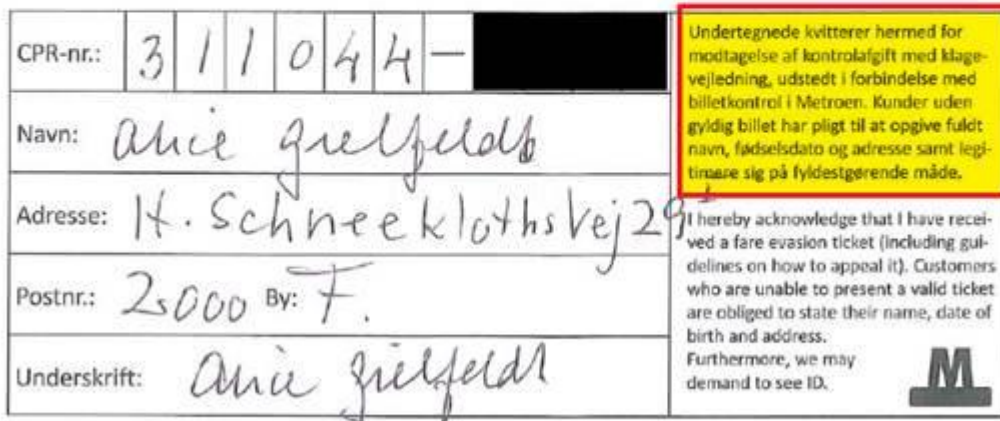 CPR-nr.: 311044-
Navn: Alice Grelfeldt
Adresse: H. Schneeklothsvej 29
Postnr.: 2000 By: F.
Underskrift: Alice
Undertegnede kvitterer hermed for
modtagelse af kontrolafgift med klage-
vejledning, udstedt i forbindelse med
billetkontrol i Metroen. Kunder uden
gyldig billet har pligt til at opgive fuldt
navn, fødselsdato og adresse samt legi-
timere sig på fyldestgørende måde.
I hereby acknowledge that I have recei-
ved a fare evasion ticket (including gui-
delines on how to appeal it). Customers
who are unable to present a valid ticket
are obliged to state their name, date of
birth and address.
Furthermore, we may
demand to see ID.
M